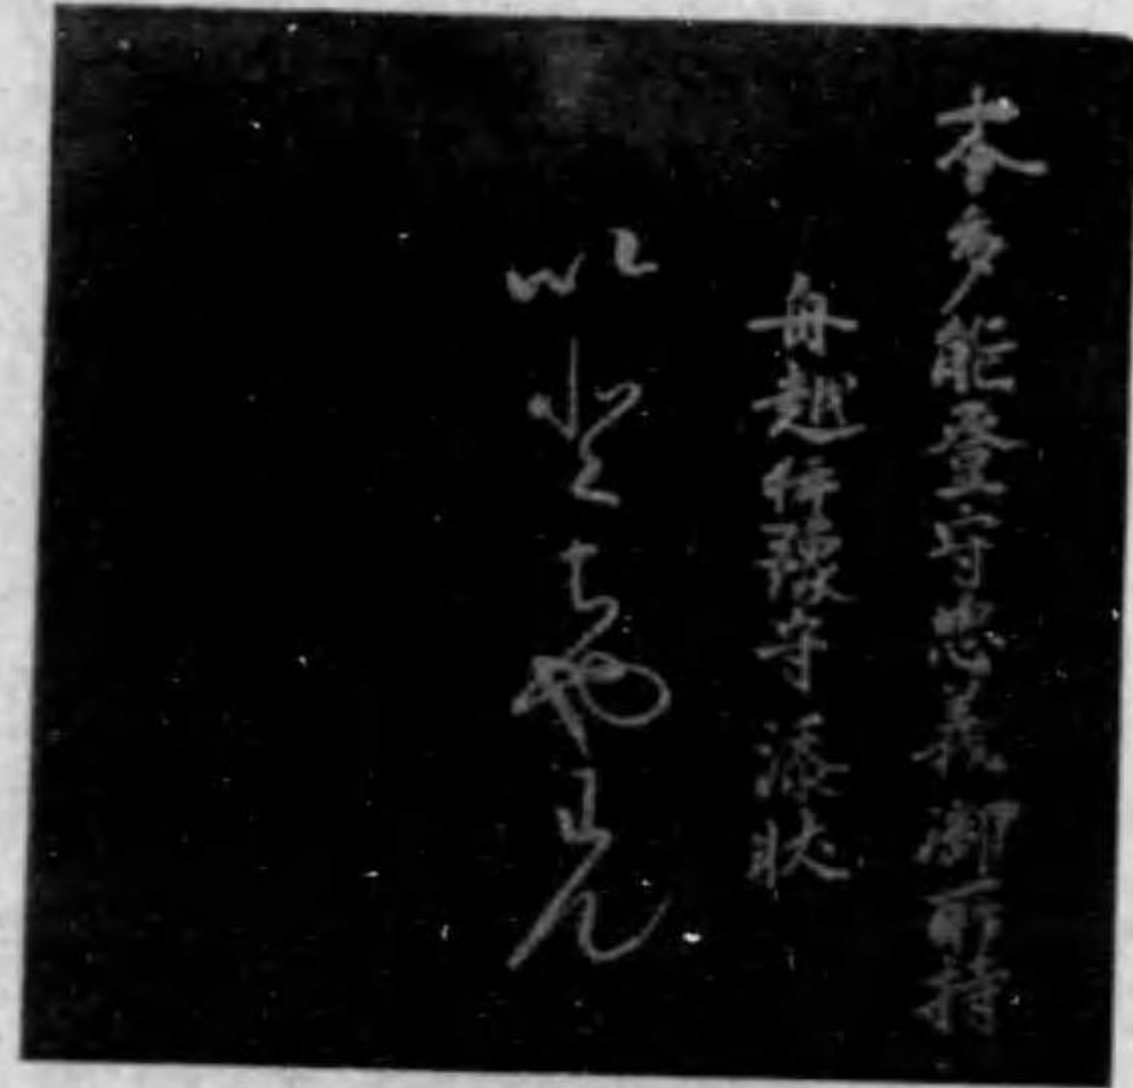 本多能登守忠義御所持
舟越伊豫守添状
いとちやわん